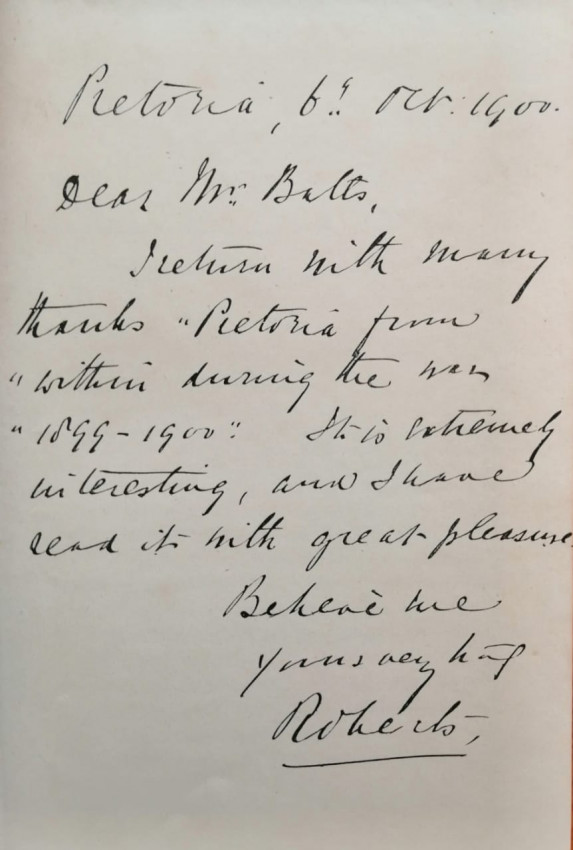 Pretoria, 6th Oct: 1900.
Dear Mr. Batts,
I return with many
thanks "Pretoria from
"within during the war
"1899-1900". It is extremely
interesting, and I have
read it with great pleasure.
Believe me
yours very truly
Roberts,